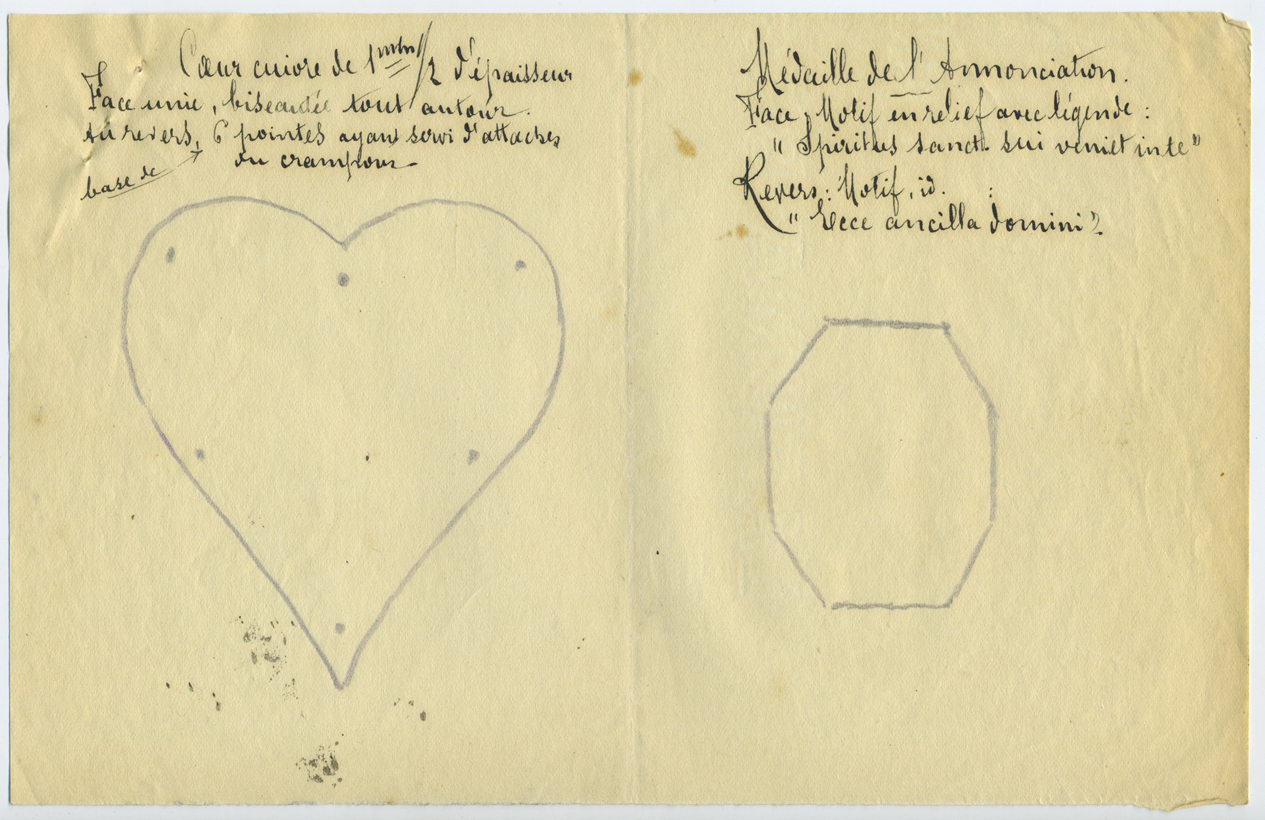 Cœur cuivre de 1mm/2 d'épaisseur
Face unie, biseautée tout autour.
Au revers, 6 pointes ayant servi d'attaches
ou crampons
base de
Médaille de l'Annonciation.
Face, Motif en relief avec légende :
" Spiritus sanct. sui veniet in te "
Revers : Motif, id. :
" Ecce ancilla domini ".